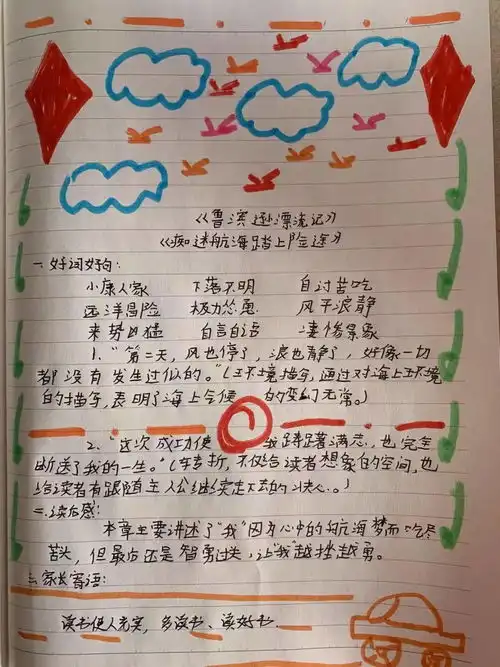 《鲁滨逊漂流记》
《痴迷航海踏上险途》
一、好词好句:
小康人家 下落不明 自讨苦吃
远洋冒险 极力怂恿 风平浪静
来势凶猛 自言自语 凄惨景象
1、“第二天，风也停了，浪也静了，好像一切
都没有发生过似的。”(环境描写，通过对海上环境
的描写，表明了海上气候的变幻无常。)
2、“这次成功使我踌躇满志，也完全
断送了我的一生。”(转折，不仅给读者想象的空间，也
给读者有跟随主人公继续走下去的决心。)
二、读后感:
本章主要讲述了“我”因为心中的航海梦而吃尽
苦头，但最后还是智勇过关，让“我”越挫越勇。
三、家长寄语:
读书使人充实，多读书、读好书.